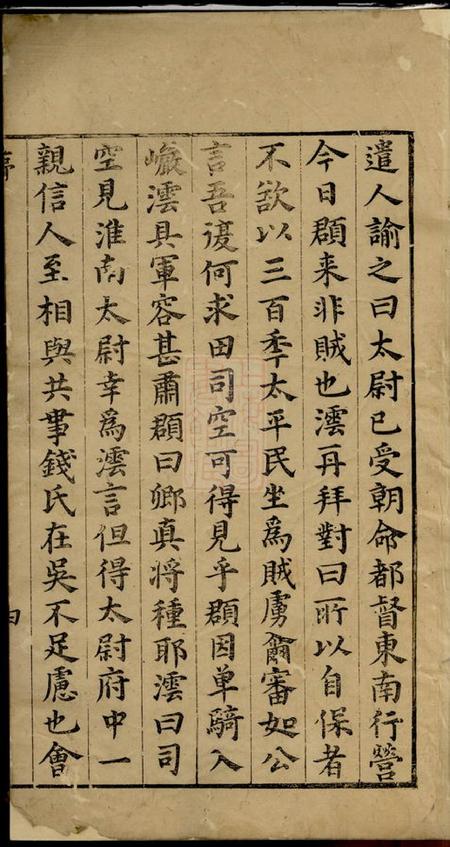 遣人諭之曰太尉已受朝命都督東南行營
今日頵来非賊也澐再拜對曰所以自保者
不欲以三百季太平民坐爲賊虜爾審如公
言吾復何求田司空可得見乎頵因单騎入
巗澐具軍容甚肅頵曰卿真将種耶澐曰司
空見淮南太尉幸爲澐言但得太尉府中一
親信人至相與共事錢氏在吳不足慮也會